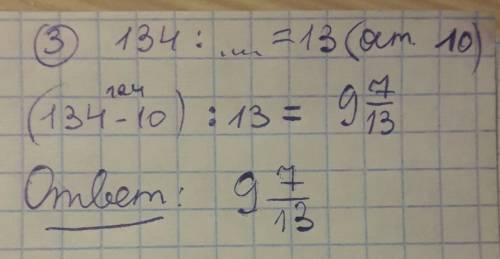 ③ 134 : .... = 13 (ост. 10)
(134 - 10) : 13 = 9 7/13
Ответ: 9 7/13